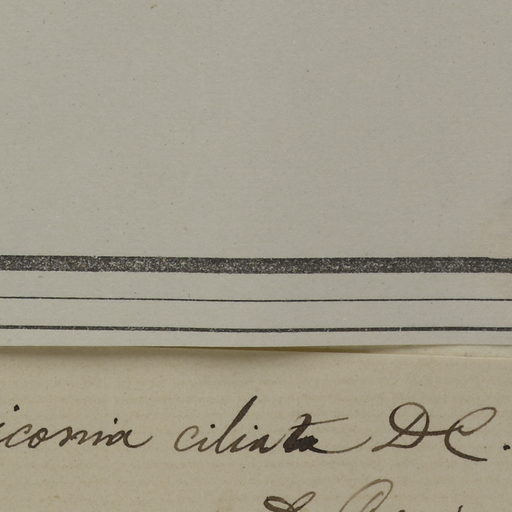 iconia ciliata DC.